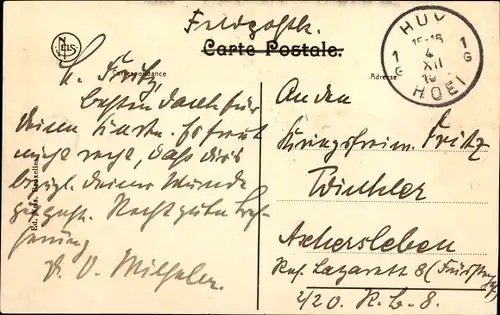 Feldpostk.
Carte Postale.
Correspondance
Adresse
NELS
HUY
15-16
4
XII
19
HOEI
1
G
1
G
L. Fritz,
besten Dank für
deine Karte. Es freut
mich recht, daß dir's
bezgl. deiner Wunde
gut geht. Recht gute Bes-
serung
d. O. Wilhelm.
An den
Kriegsfreiw. Fritz
Winkler
Aschersleben
Res. Lazarett 8
Ed. Nels, Bruxelles